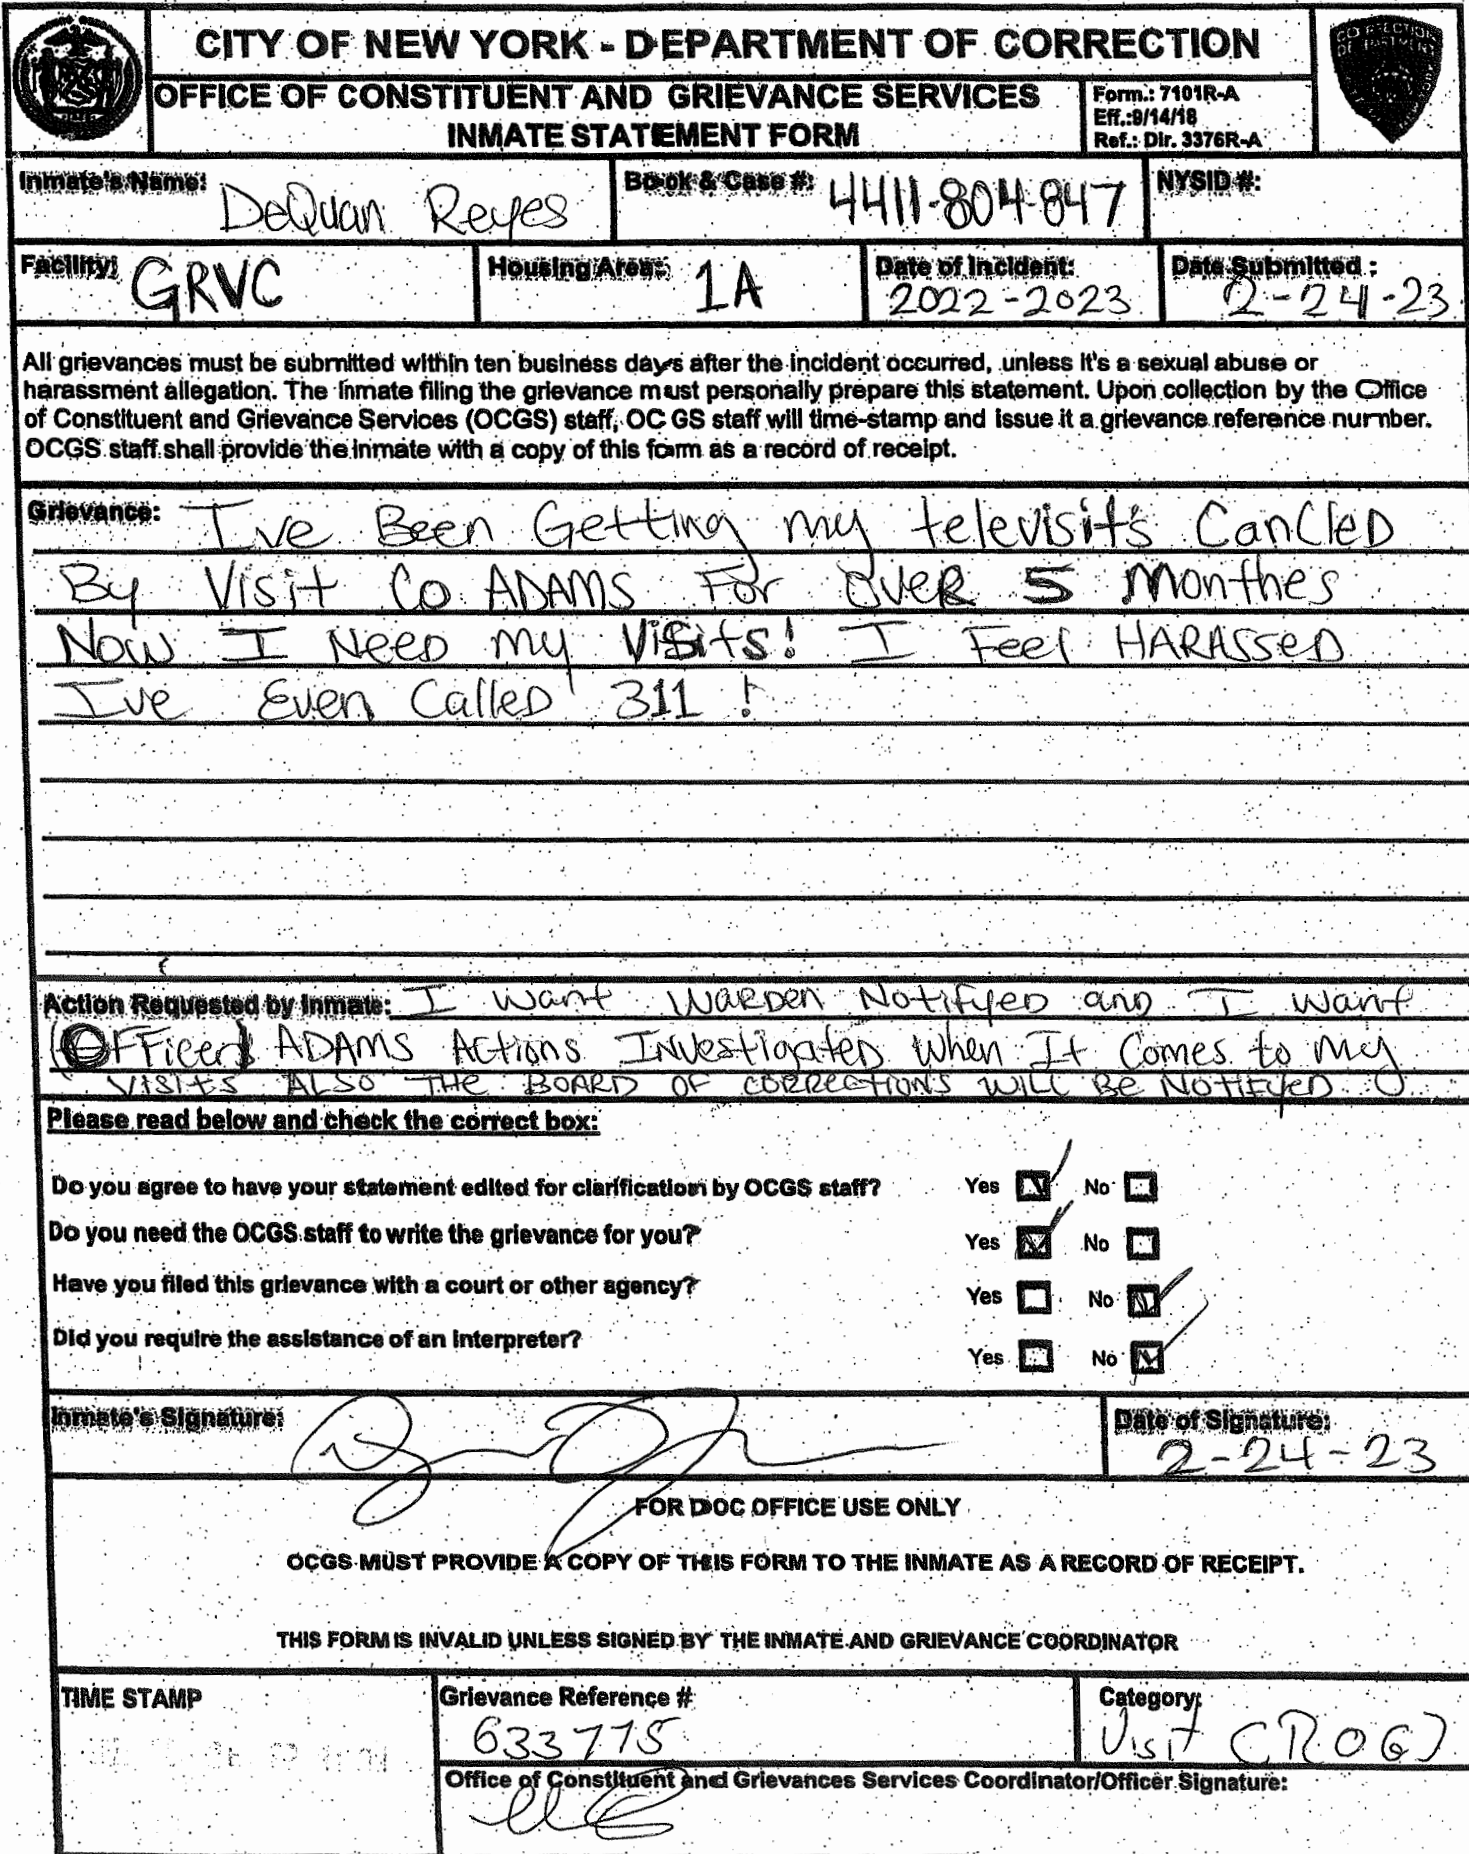 CITY OF NEW YORK - DEPARTMENT OF CORRECTION
OFFICE OF CONSTITUENT AND GRIEVANCE SERVICES
INMATE STATEMENT FORM
Form.: 7101R-A
Eff.:9/14/18
Ref.: Dir. 3376R-A
CORRECTION
DEPARTMENT
Inmate's Name: DeQuan Reyes
Book & Case #: 4411-804-847
NYSID #:
Facility: GRVC
Housing Area: 1A
Date of Incident: 2022-2023
Date Submitted : 2-24-23
All grievances must be submitted within ten business days after the incident occurred, unless it's a sexual abuse or
harassment allegation. The inmate filing the grievance must personally prepare this statement. Upon collection by the Office
of Constituent and Grievance Services (OCGS) staff, OCGS staff will time-stamp and issue it a grievance reference number.
OCGS staff shall provide the inmate with a copy of this form as a record of receipt.
Grievance: I've Been Getting my televisit's CanClED
By Visit Co ADAMS For OveR 5 Monthes
Now I NEED my Visits! I Feel HARASSED
I've Even CallED 311 !
Action Requested by Inmate: I want WARDEN NotifyED and I want
(OFFicer) ADAMS Actions InvestigatED When It Comes to my
VISITS ALSO THE BOARD OF CORRECTIONS WILL BE NOTIFYED
Please read below and check the correct box:
Do you agree to have your statement edited for clarification by OCGS staff? Yes No
Do you need the OCGS staff to write the grievance for you? Yes No
Have you filed this grievance with a court or other agency? Yes No
Did you require the assistance of an interpreter? Yes No
Inmate's Signature:
Date of Signature: 2-24-23
FOR DOC OFFICE USE ONLY
OCGS MUST PROVIDE A COPY OF THIS FORM TO THE INMATE AS A RECORD OF RECEIPT.
THIS FORM IS INVALID UNLESS SIGNED BY THE INMATE AND GRIEVANCE COORDINATOR
TIME STAMP
Grievance Reference #
633775
Category:
Visit (ROG)
Office of Constituent and Grievances Services Coordinator/Officer Signature: